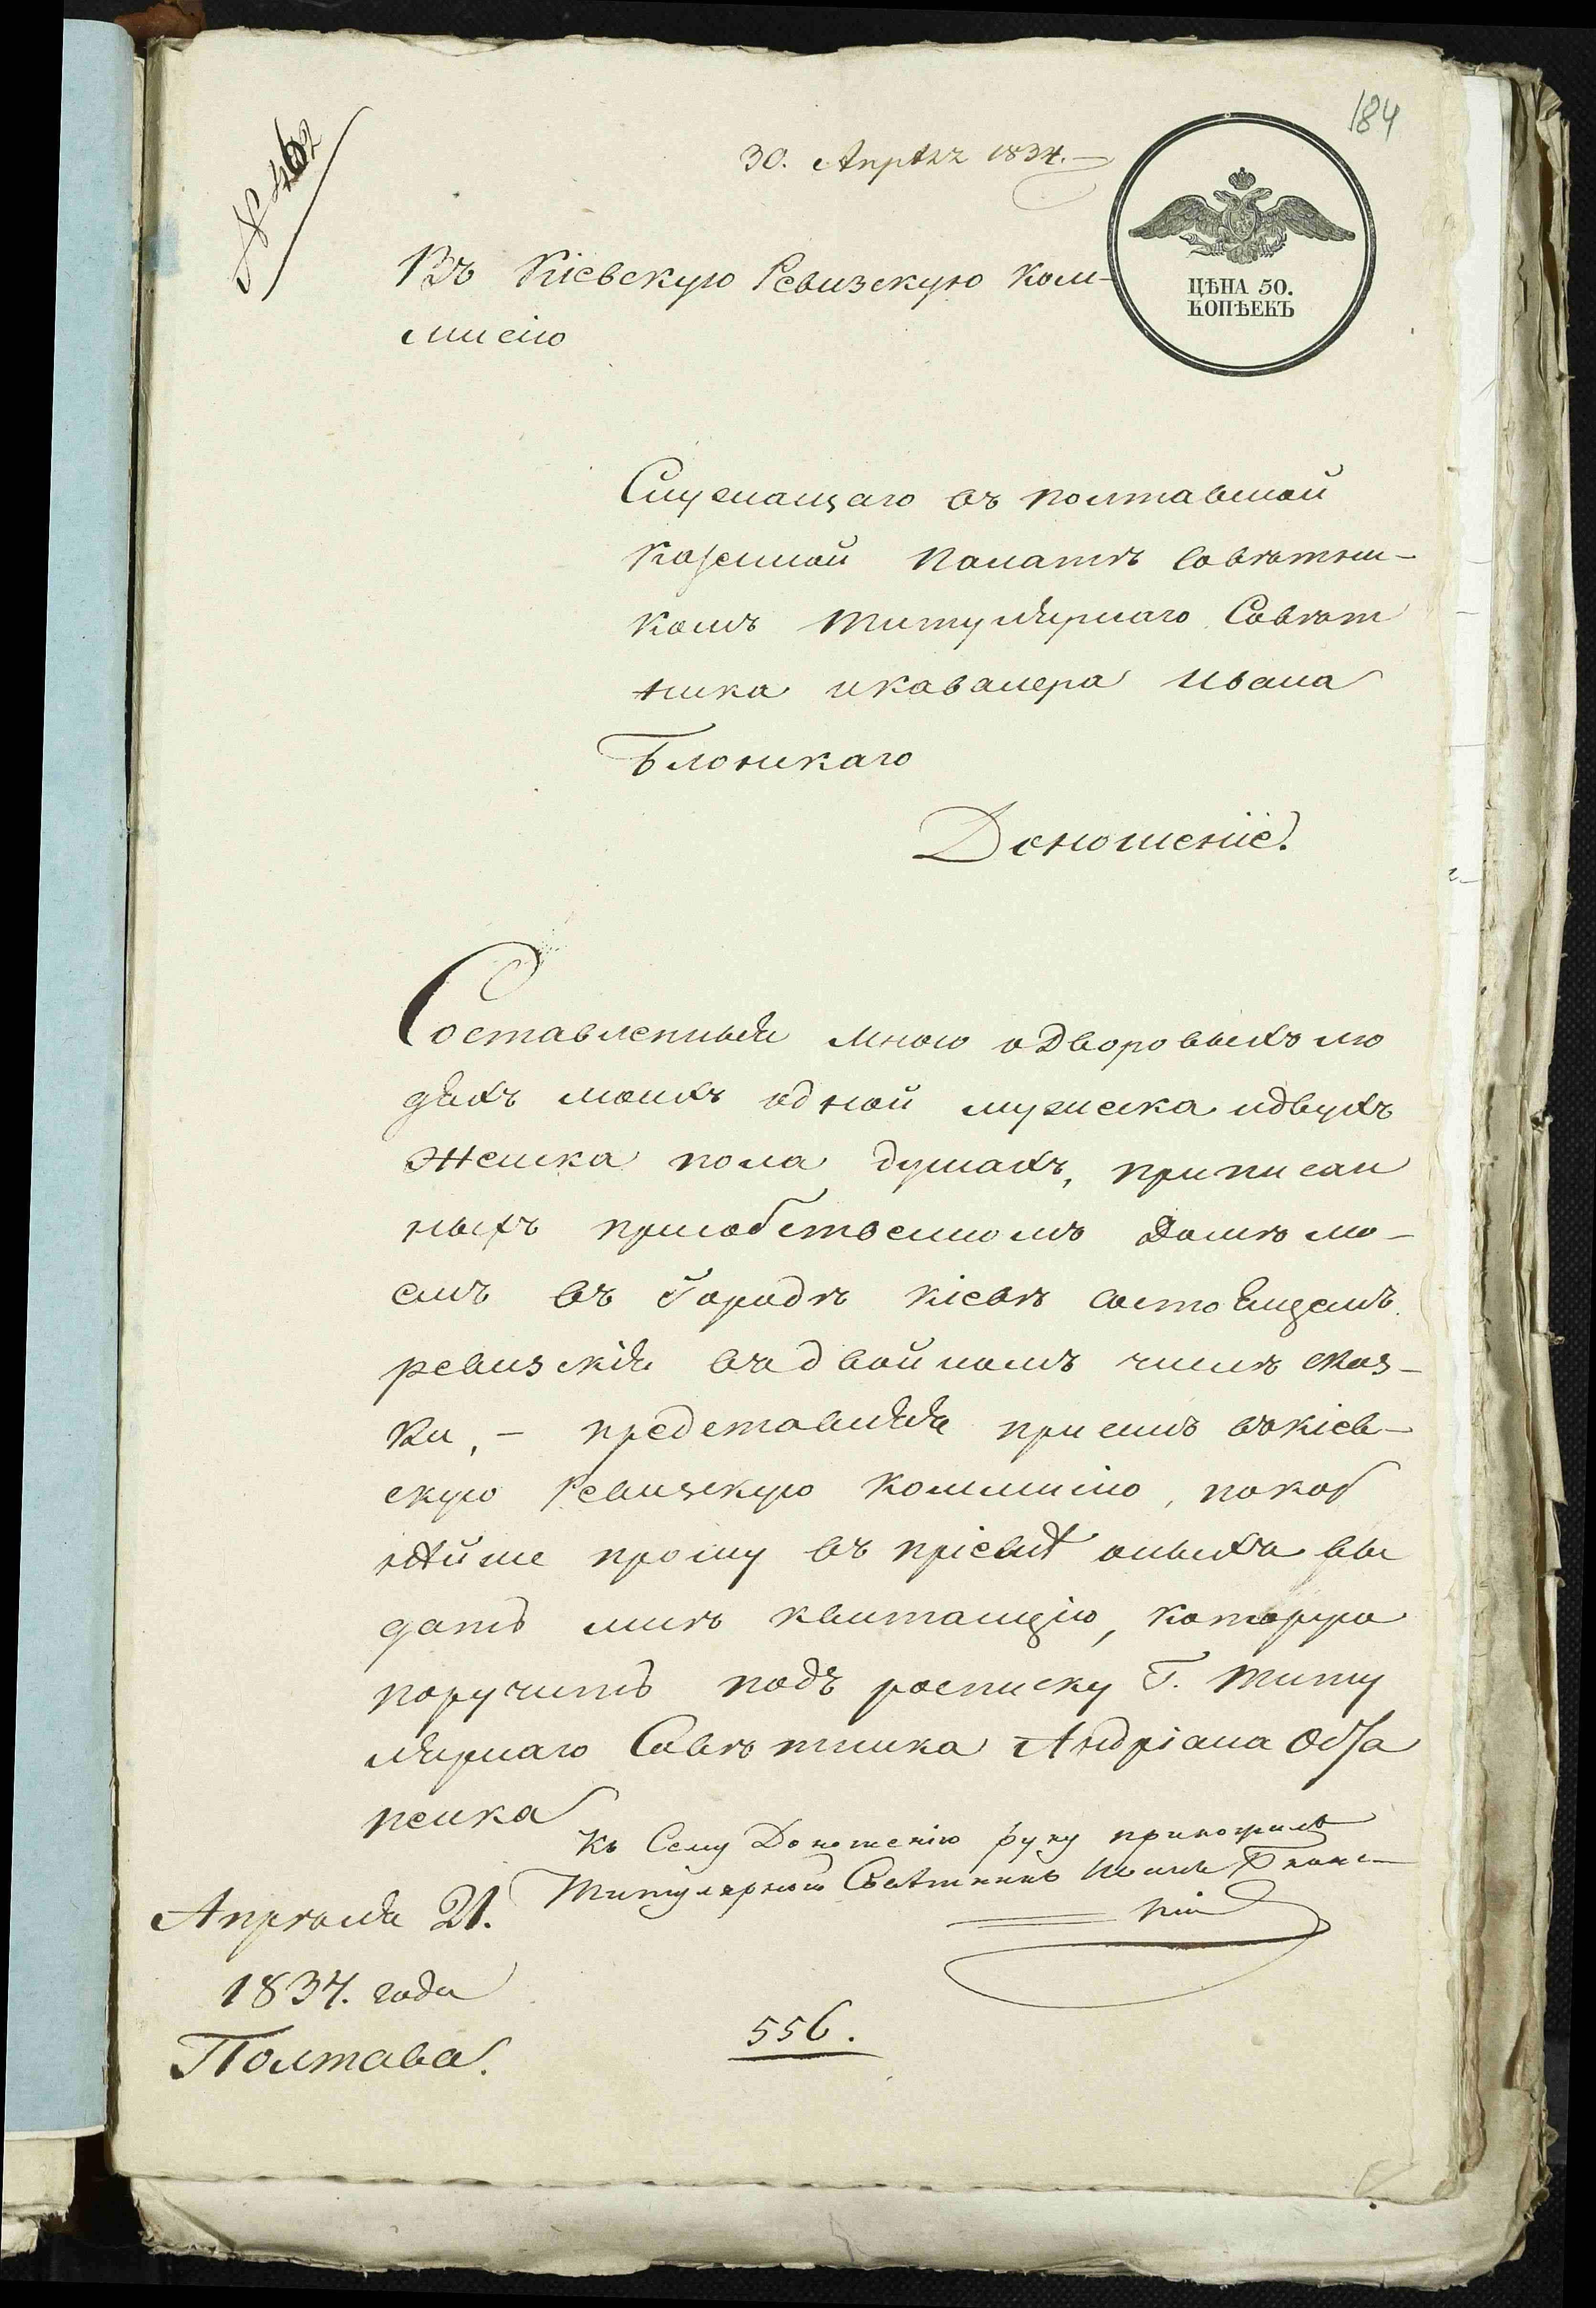 184
30. Апрѣля 1834.
ЦѢНА 50.
КОПѢЕКЪ
Въ Кіевскую Ревизскую Ком-
мисію
Служащаго въ полтавской
Казенной Палатѣ Совѣтни-
комъ Титулярнаго Совѣт
ника и кавалера Ивана
Блонскаго
Доношеніе.
Составленныя мною о Дворовыхъ лю
дяхъ моихъ одной мужеска и двухъ
Женска пола душахъ, приписан
ныхъ при собственномъ Домѣ мо-
емъ въ Городѣ Кіевѣ состоящемъ
ревизскія въ двойномъ числѣ сказ-
ки, - представляя при семъ въ Кіев-
скую Ревизскую Коммисію, покор
нѣйше прошу въ пріемѣ оныхъ вы
дать мнѣ квитанцію, которую
поручить подъ росписку Г. Титу
лярнаго Совѣтника Андріана
Къ Сему Доношенію руку приложилъ
Титулярный Совѣтникъ Иванъ Блонс-
кій
Апрѣля 21.
1834. года
Полтава.
556.